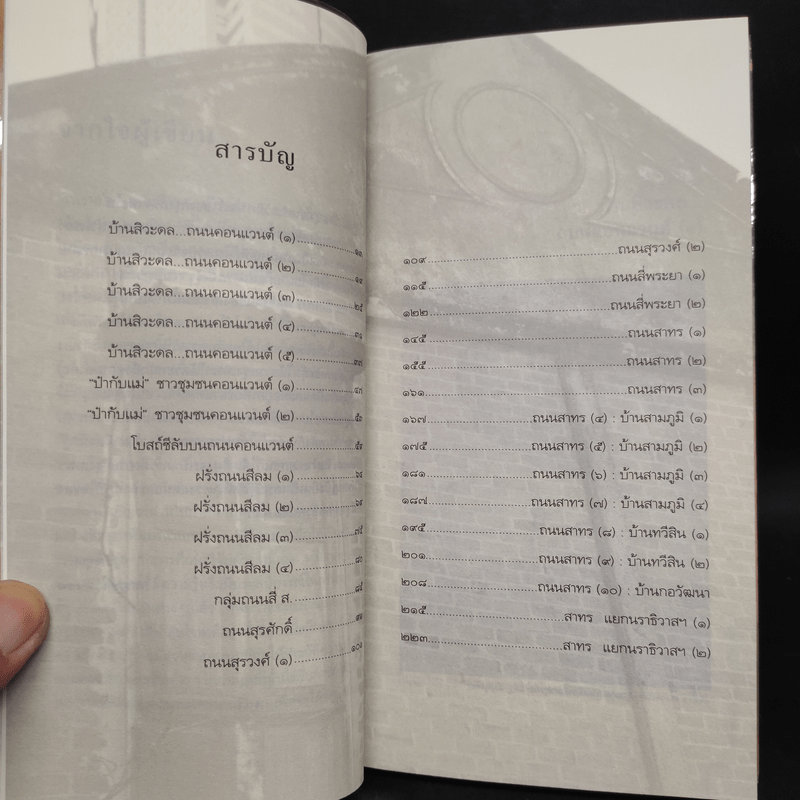 สารบัญ
บ้านสิวะดล...ถนนคอนแวนต์ (๑)
บ้านสิวะดล...ถนนคอนแวนต์ (๒)
บ้านสิวะดล...ถนนคอนแวนต์ (๓)
บ้านสิวะดล...ถนนคอนแวนต์ (๔)
บ้านสิวะดล...ถนนคอนแวนต์ (๕)
"ป๋ากับแม่" ชาวชุมชนคอนแวนต์ (๑)
"ป๋ากับแม่" ชาวชุมชนคอนแวนต์ (๒)
โบสถ์ชีลับบนถนนคอนแวนต์
ฝรั่งถนนสีลม (๑)
ฝรั่งถนนสีลม (๒)
ฝรั่งถนนสีลม (๓)
ฝรั่งถนนสีลม (๔)
กลุ่มถนนสี่ ส.
ถนนสุรศักดิ์
ถนนสุรวงศ์ (๑)
๑๐๙ ถนนสุรวงศ์ (๒)
๑๑๕ ถนนสี่พระยา (๑)
๑๒๒ ถนนสี่พระยา (๒)
๑๔๕ ถนนสาทร (๑)
๑๕๕ ถนนสาทร (๒)
๑๖๑ ถนนสาทร (๓)
๑๖๗ ถนนสาทร (๔) : บ้านสามภูมิ (๑)
๑๗๕ ถนนสาทร (๕) : บ้านสามภูมิ (๒)
๑๘๑ ถนนสาทร (๖) : บ้านสามภูมิ (๓)
๑๘๗ ถนนสาทร (๗) : บ้านสามภูมิ (๔)
๑๙๕ ถนนสาทร (๘) : บ้านทวีสิน (๑)
๒๐๑ ถนนสาทร (๙) : บ้านทวีสิน (๒)
๒๐๘ ถนนสาทร (๑๐) : บ้านกอวัฒนา
๒๑๕ สาทร แยกนราธิวาสฯ (๑)
๒๒๓ สาทร แยกนราธิวาสฯ (๒)